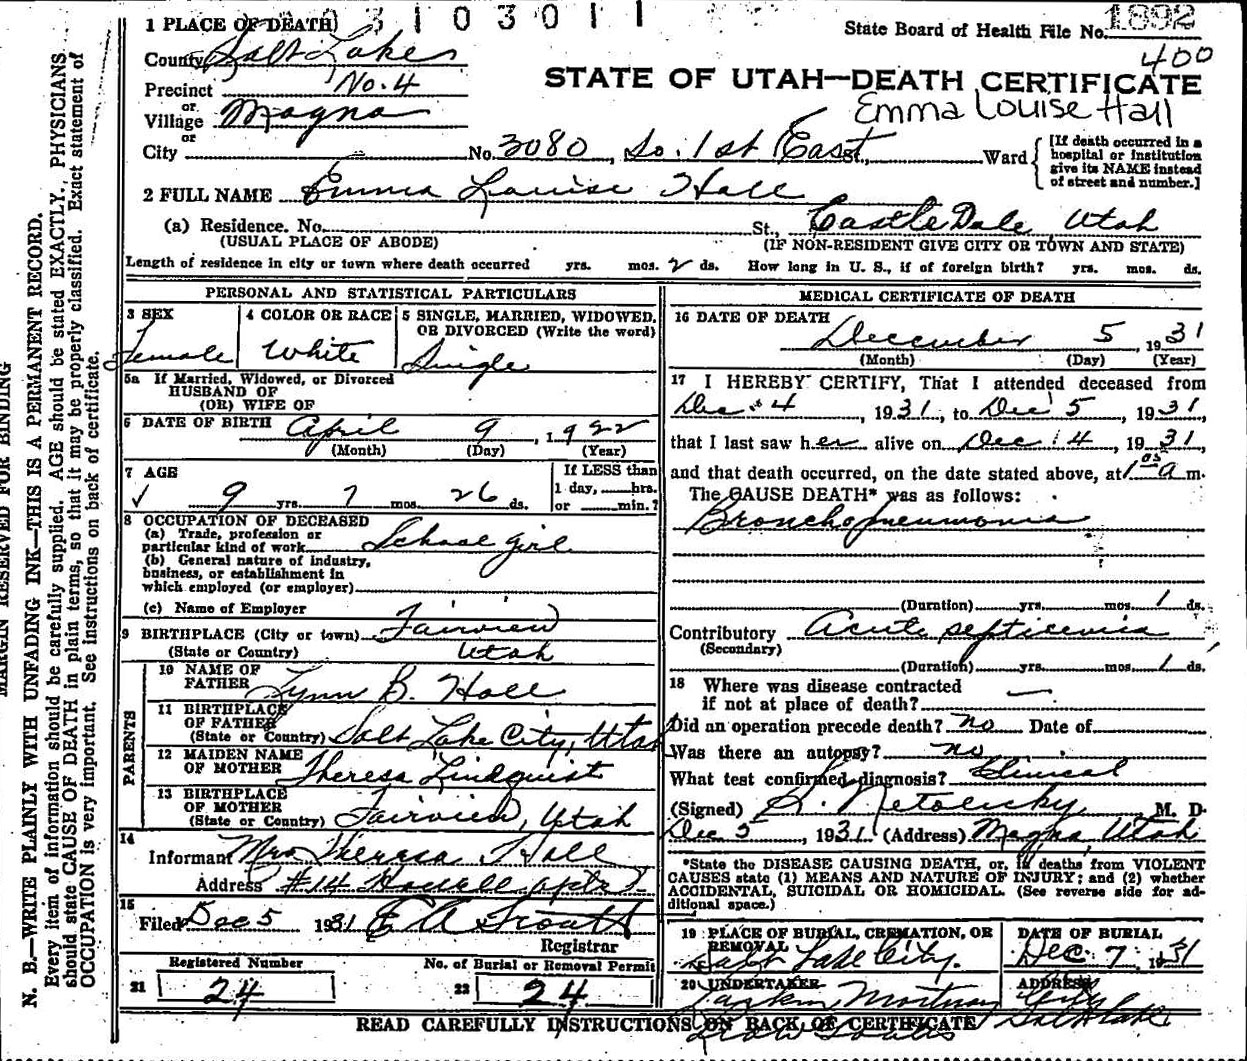 1 PLACE OF DEATH 3 1 0 3 0 1 1
State Board of Health File No. 1892
400
County Salt Lake
Precinct No. 4
or
Village Magna
or
City
STATE OF UTAH—DEATH CERTIFICATE
Emma Louise Hall
No. 3080, So. 1st East St., Ward
[If death occurred in a hospital or institution give its NAME instead of street and number.]
2 FULL NAME Emma Louise Hall
(a) Residence. No. St., Castle Dale, Utah
(USUAL PLACE OF ABODE) (IF NON-RESIDENT GIVE CITY OR TOWN AND STATE)
Length of residence in city or town where death occurred yrs. mos. 2 ds. How long in U. S., if of foreign birth? yrs. mos. ds.
PERSONAL AND STATISTICAL PARTICULARS
3 SEX
Female
4 COLOR OR RACE
White
5 SINGLE, MARRIED, WIDOWED, OR DIVORCED (Write the word)
Single
5a If Married, Widowed, or Divorced
HUSBAND OF
(OR) WIFE OF
6 DATE OF BIRTH April 9, 1922
(Month) (Day) (Year)
7 AGE
9 yrs. 7 mos. 26 ds.
If LESS than
1 day, hrs.
or min.?
8 OCCUPATION OF DECEASED
(a) Trade, profession or
particular kind of work School girl
(b) General nature of industry,
business, or establishment in
which employed (or employer)
(c) Name of Employer
9 BIRTHPLACE (City or town) Fairview
(State or Country) Utah
PARENTS
10 NAME OF
FATHER Lynn B. Hall
11 BIRTHPLACE
OF FATHER
(State or Country) Salt Lake City, Utah
12 MAIDEN NAME
OF MOTHER Theresa Lindquist
13 BIRTHPLACE
OF MOTHER
(State or Country) Fairview, Utah
14
Informant Mrs Theresa Hall
Address #14
15
Filed Dec 5 1931
Registrar
Registered Number
21 24
No. of Burial or Removal Permit
22 24
MEDICAL CERTIFICATE OF DEATH
16 DATE OF DEATH
December 5, 1931
(Month) (Day) (Year)
17 I HEREBY CERTIFY, That I attended deceased from
Dec 4, 1931, to Dec 5, 1931,
that I last saw her alive on Dec 4, 1931,
and that death occurred, on the date stated above, at 1 a m.
The CAUSE DEATH* was as follows:
Bronchopneumonia
(Duration) yrs. mos. 1 ds.
Contributory Acute septicemia
(Secondary)
(Duration) yrs. mos. 1 ds.
18 Where was disease contracted
if not at place of death? —
Did an operation precede death? no Date of
Was there an autopsy? no
What test confirmed diagnosis? Clinical
(Signed) Netolicky M. D.
Dec 5, 1931 (Address) Magna, Utah
*State the DISEASE CAUSING DEATH, or, in deaths from VIOLENT
CAUSES state (1) MEANS AND NATURE OF INJURY; and (2) whether
ACCIDENTAL, SUICIDAL OR HOMICIDAL. (See reverse side for ad-
ditional space.)
19 PLACE OF BURIAL, CREMATION, OR
REMOVAL
Salt Lake City.
DATE OF BURIAL
Dec 7, 1931
20 UNDERTAKER
Mortuary
ADDRESS
Salt Lake
READ CAREFULLY INSTRUCTIONS ON BACK OF CERTIFICATE
MARGIN RESERVED FOR BINDING
N. B.—WRITE PLAINLY WITH UNFADING INK—THIS IS A PERMANENT RECORD.
Every item of information should be carefully supplied. AGE should be stated EXACTLY, PHYSICIANS
should state CAUSE OF DEATH in plain terms, so that it may be properly classified. Exact statement of
OCCUPATION is very important. See instructions on back of certificate.